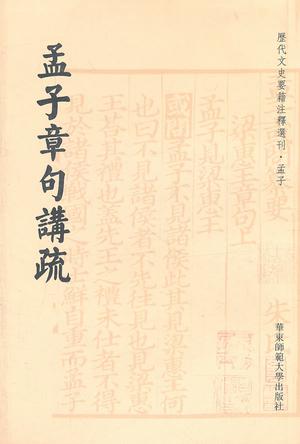 歷代文史要籍注釋選刊·孟子
華東師範大學出版社
孟子章句講疏
朱
梁惠王章句上
孟子見梁惠王
孟子不見諸侯此其見梁惠王何
也曰不見諸侯者不先往見也見梁惠
王荅其禮也蓋先王之禮未仕者不得
見於諸侯戰國之時士鮮自重而孟子